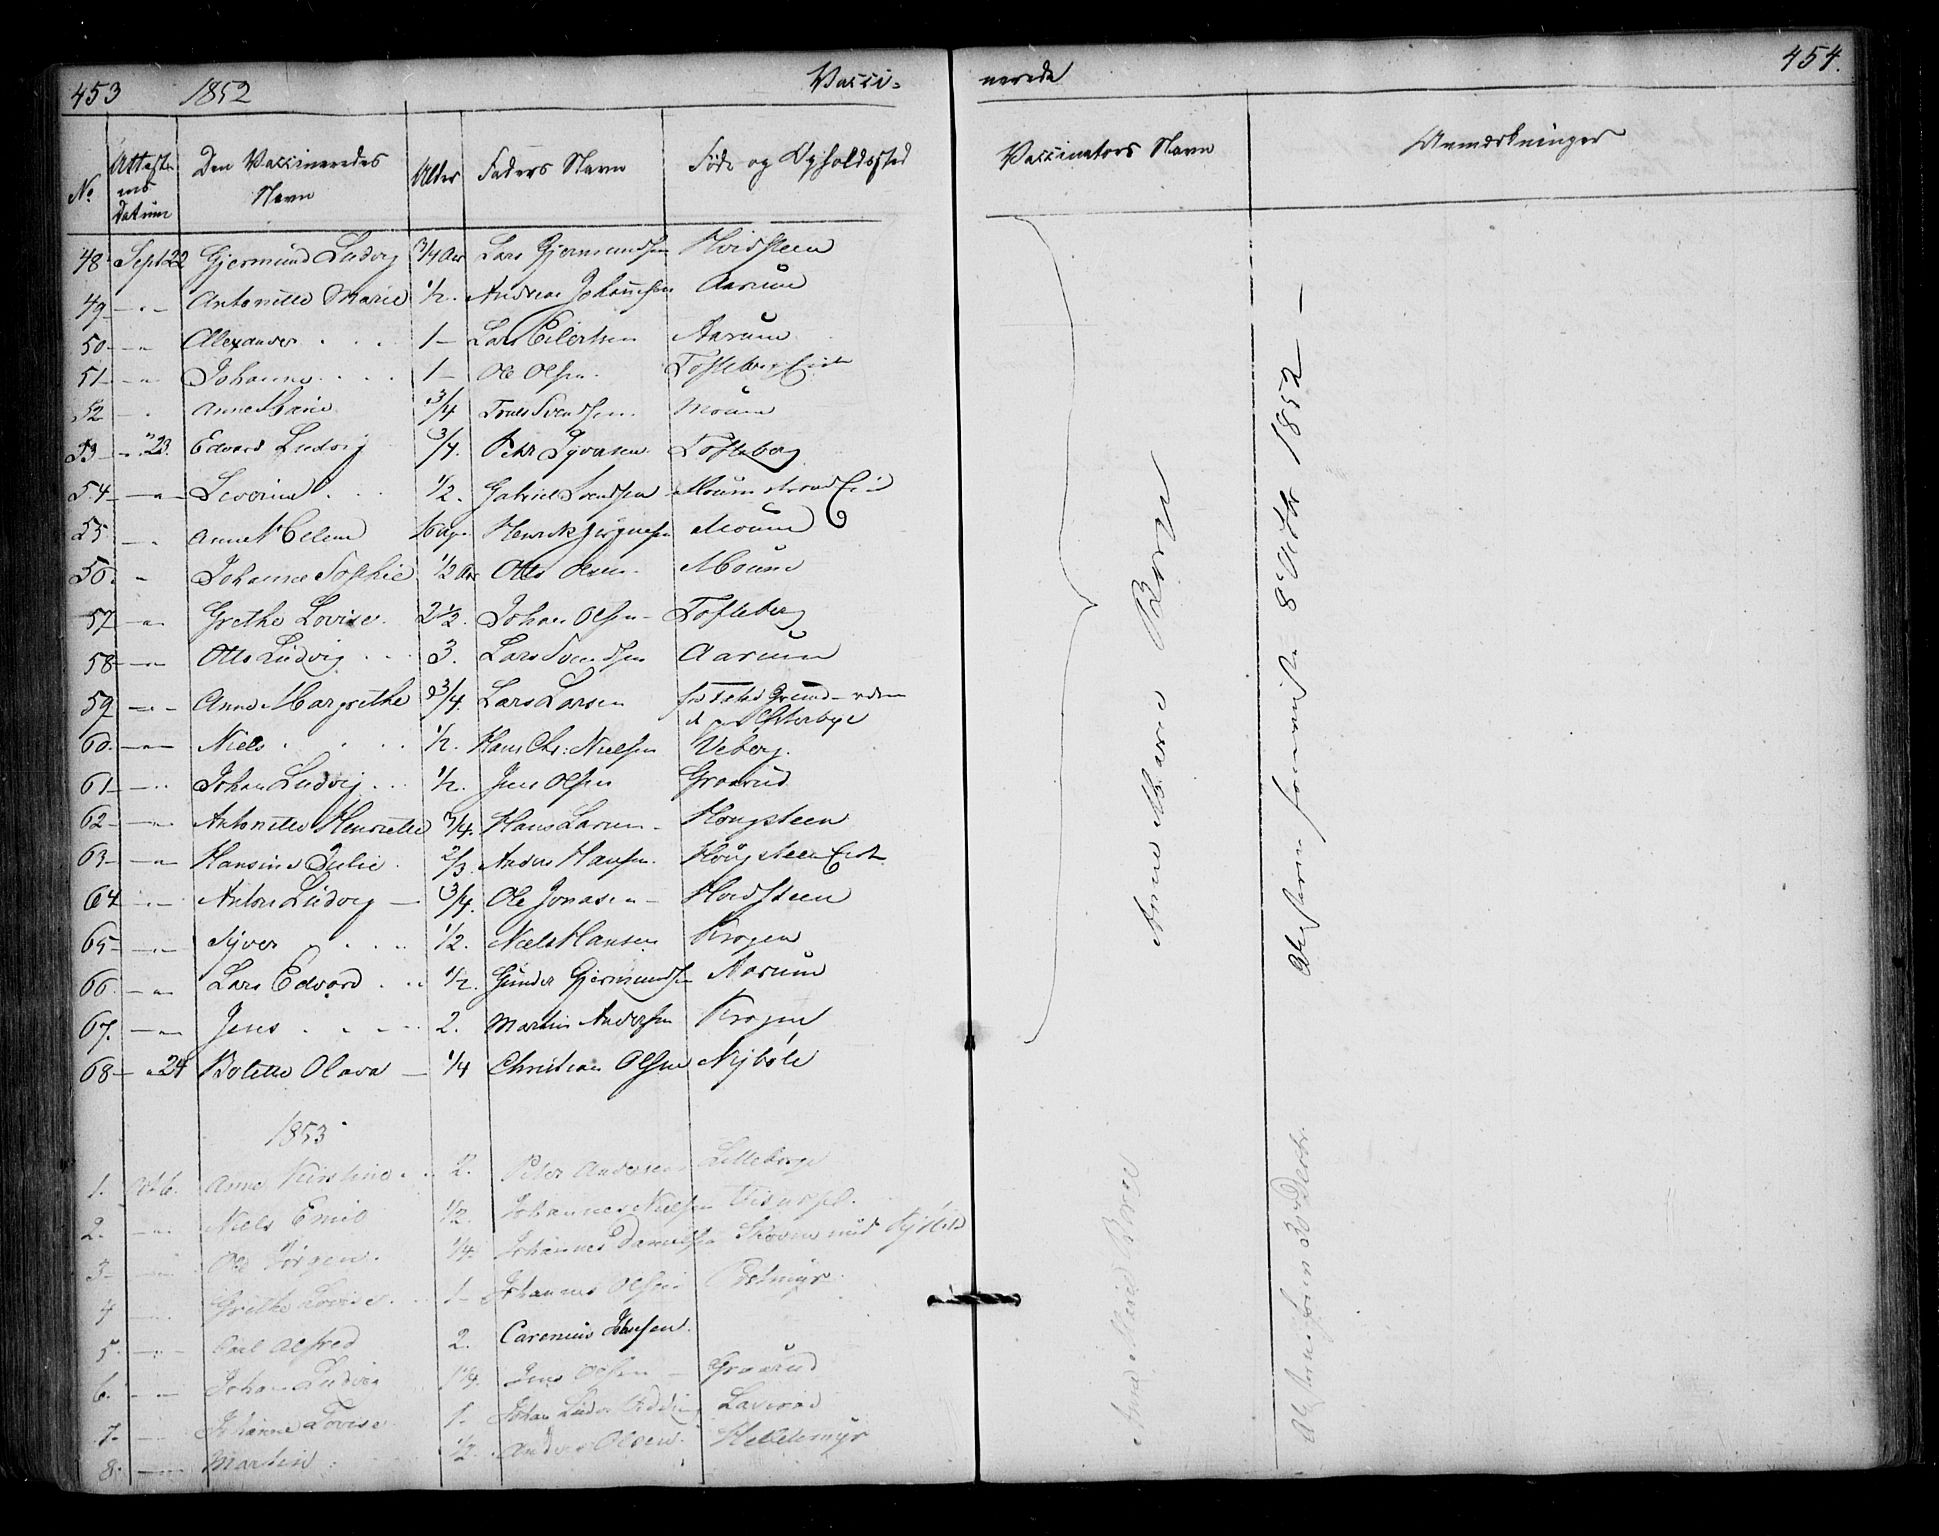 453 1852 Vacci-
nerede 454.
No. Attestens Datum Den Vaccineredes Navn Alder Faders Navn Føde og Opholdssted Vaccinators Navn Anmærkninger
48 Sept 22 Gjermund Ludvig 3/4 Aar Lars Gjermundsen Hvidsteen
49 - " - Antonette Marie 1/2. Andreas Johannsen Aarum
50 - " Alexander . . . 1 - Lars Eilertsen Aarum
51 - " Johanne . . . 1 - Ole Olsen. Tofteberg Eie
52 - " Anne Marie 3/4 Truls Svendsen Moum
53 - " 23. Edvard Ludvig 3/4. Peder Syversen Tofteberg
54 - " - Severine . . 1/2. Gabriel Svendsen Moum strand Eie
55 - " Anne Helene Henrik Jørgensen Moum
56. " Johanne Sophie 1/2 Aar Otto Olsen Moum
57 - " Grethe Lovise. 2 1/2. Johan Olsen - Tofteberg
58 - " Otto Ludvig . . . 3. Lars Svendsen Aarum
59 - " - Anne Margrethe 3/4. Lars Larsen
60. - " - Niels . . . . 1/2. Hans Chr: Nielsen Veberg.
61 - " Johan Ludvig . . . 1/2. Jens Olsen Graarud
62 - " Antonette Henriette 3/4. Hans Larsen - Hougsteen
63 - " Hansine Julie . 2/3. Anders Hansen. Hougsteen Eie
64 - " - Anton Ludvig - 3/4. Ole Jonasen - Hvidsteen
65 - " Syver . . . . 1/2. Niels Hansen Krogen
66. - " Lars Edvard . . . 1/2. Gunder Gjermundsen Aarum
67. - " Jens . . . . 2. Martin Andersen Krogen
68 - " 24 Bolette Olava - 1/4 Christian Olsen Nybøle
Anne Marie Borge
8de Octbr 1852 -
1853
1. Oct 6. Anne Kirstine . . 2. Peter Andersen Lilleborge
2. - " Niels Emil 1/2. Johannes Nielsen
3 - " Ole Jørgen. 1/4. Johannes Danielsen
4 - " Grethe Lovise . . 1 - Johannes Olsen
5. - " - Carl Alfred 2. Carenius Hansen.
6. - " Johan Ludvig Jens Olsen - Graarud
7. - " Johanne Lovise 1. Johan
8. - " Martin . 1/2. Anders Olsen. Hellemyr
Anne Marie Borge
30te Decbr.